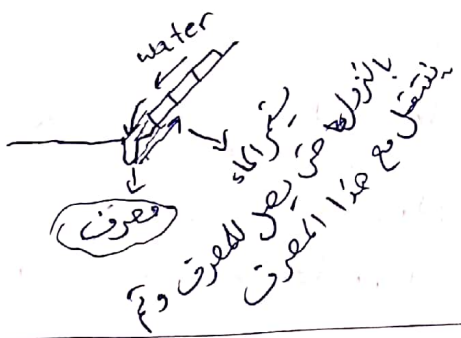 water
مصرف
يستمر الماء
بالنزول حتى يصل للمصرف وثم
ينتقل مع هذا المصرف